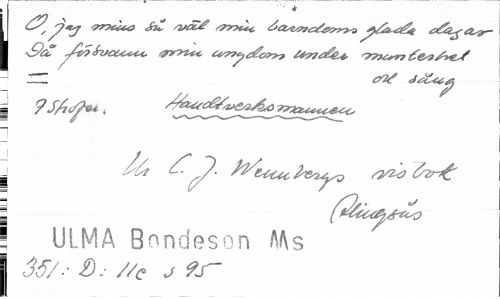 O, jag mins så väl min barndoms glada dagar
Då försvann min ungdom under munterhet
och sång
9 strofer. Handtverksmannen
Ur C. J. Wennbergs visbok
Alingsås
ULMA Bondeson Ms
351: D: 11c s 95